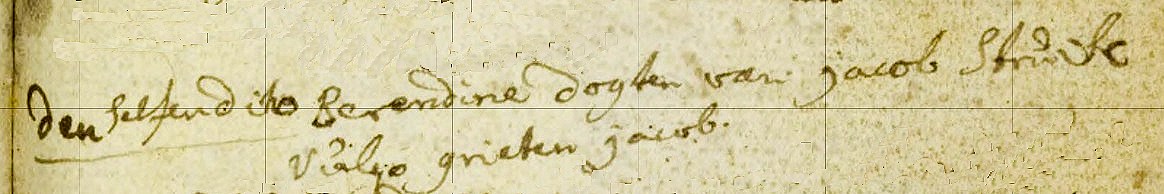 den selfen dito Berendine dogter van jacob Struik
grieten jacob.